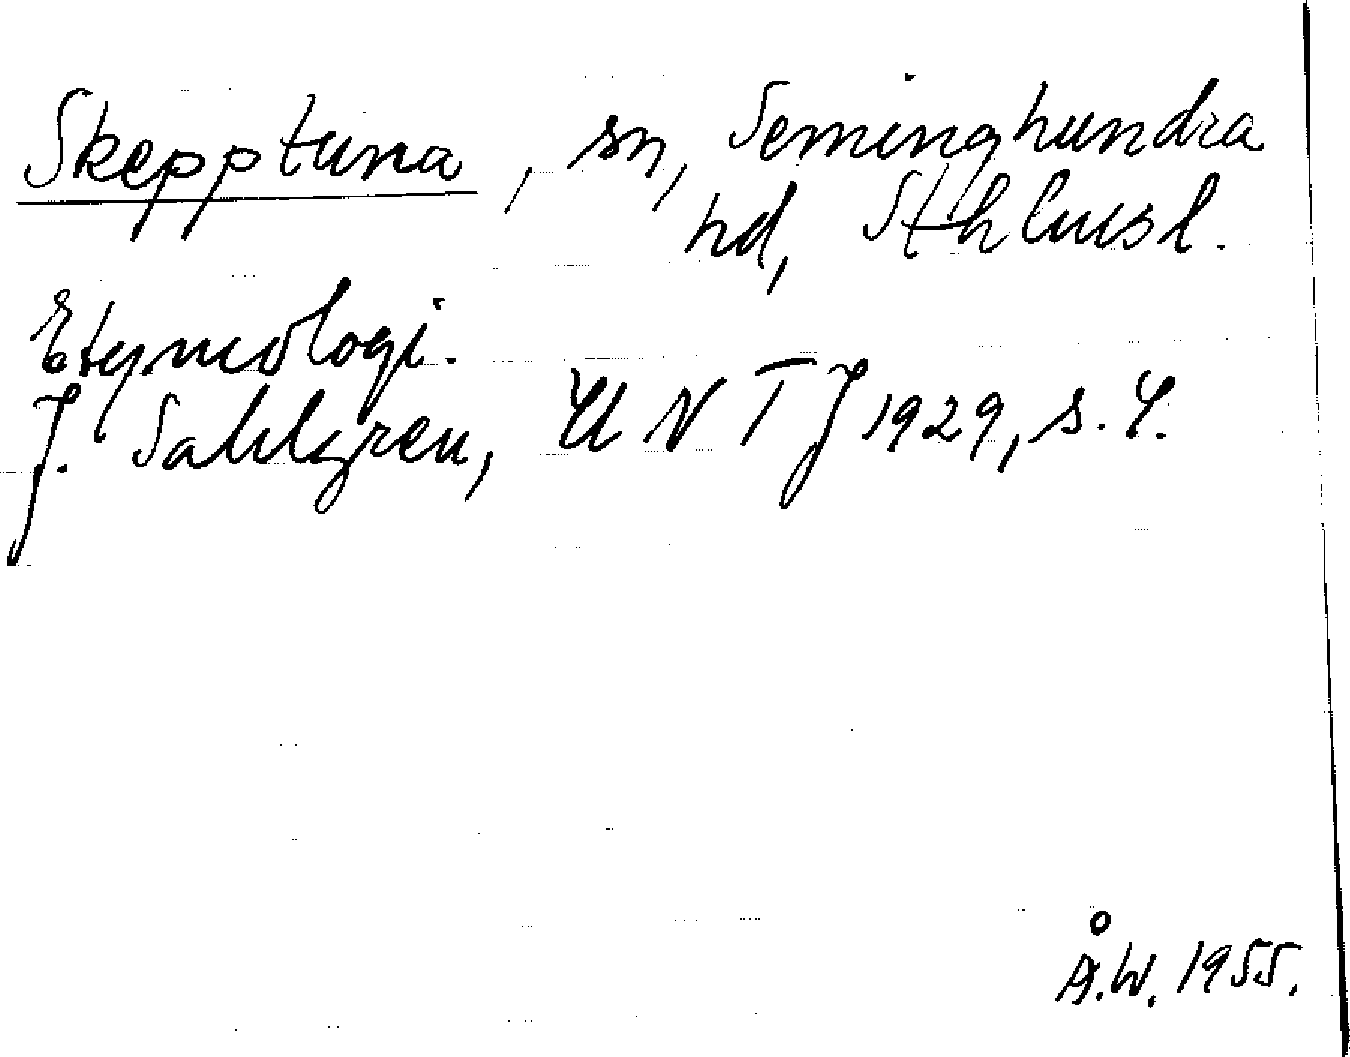 Skepptuna, sn, Seminghundra
hd, Sthlmsl.
Etymologi.
J. Sahlgren, UNTJ 1929, s. 4.
Å.W. 1955.